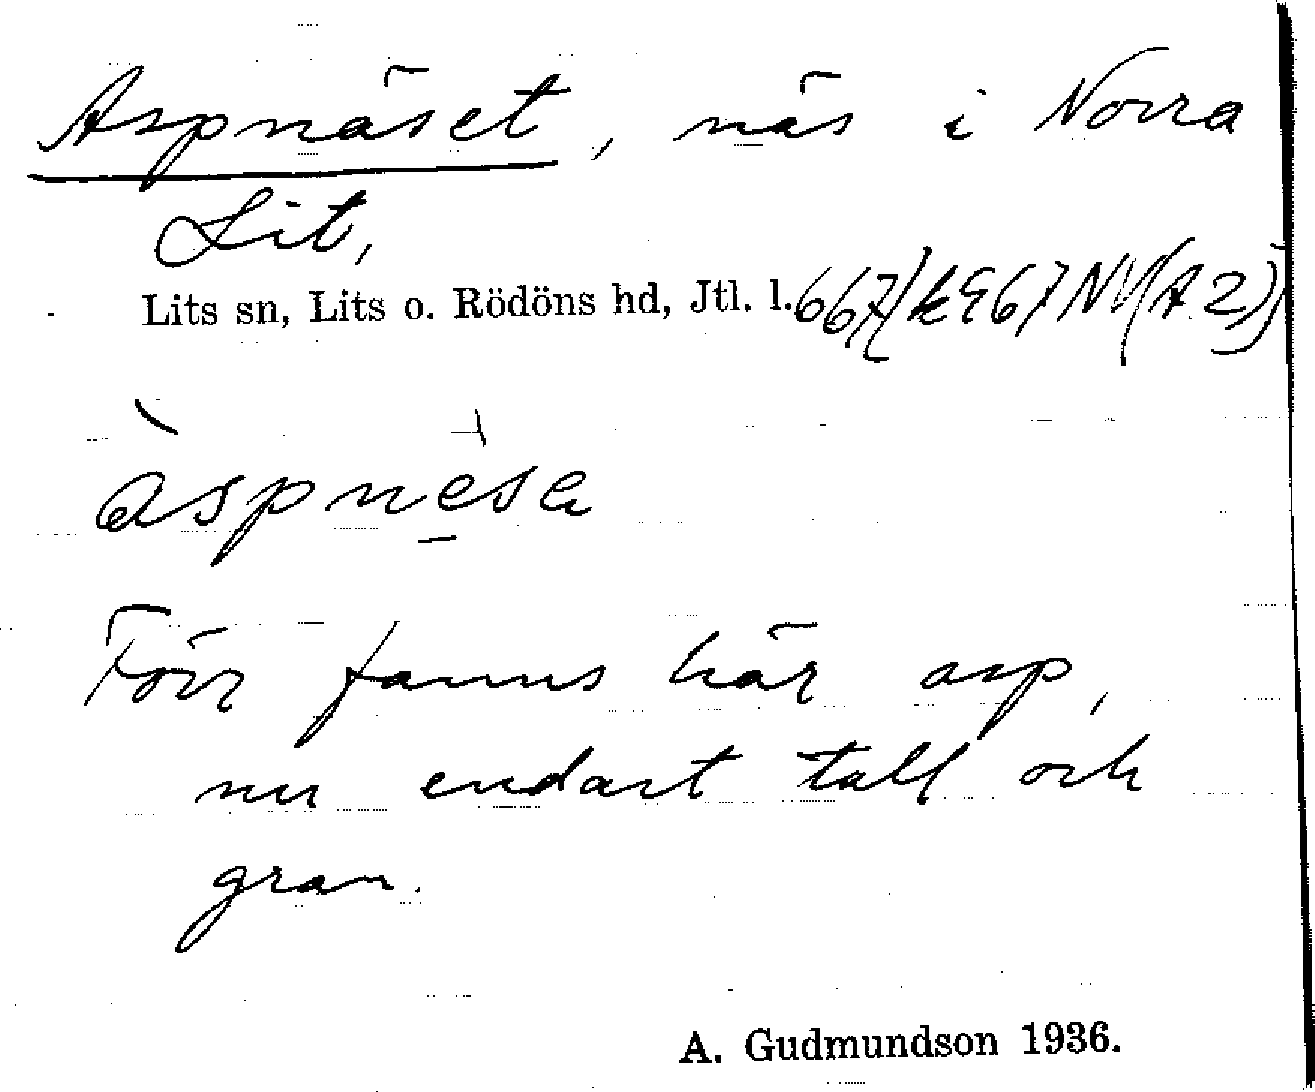 Aspnäset, näs i Norra
Lit,
Lits sn, Lits o. Rödöns hd, Jtl. l.
Förr fanns här asp,
nu endast tall och
gran.
A. Gudmundson 1936.